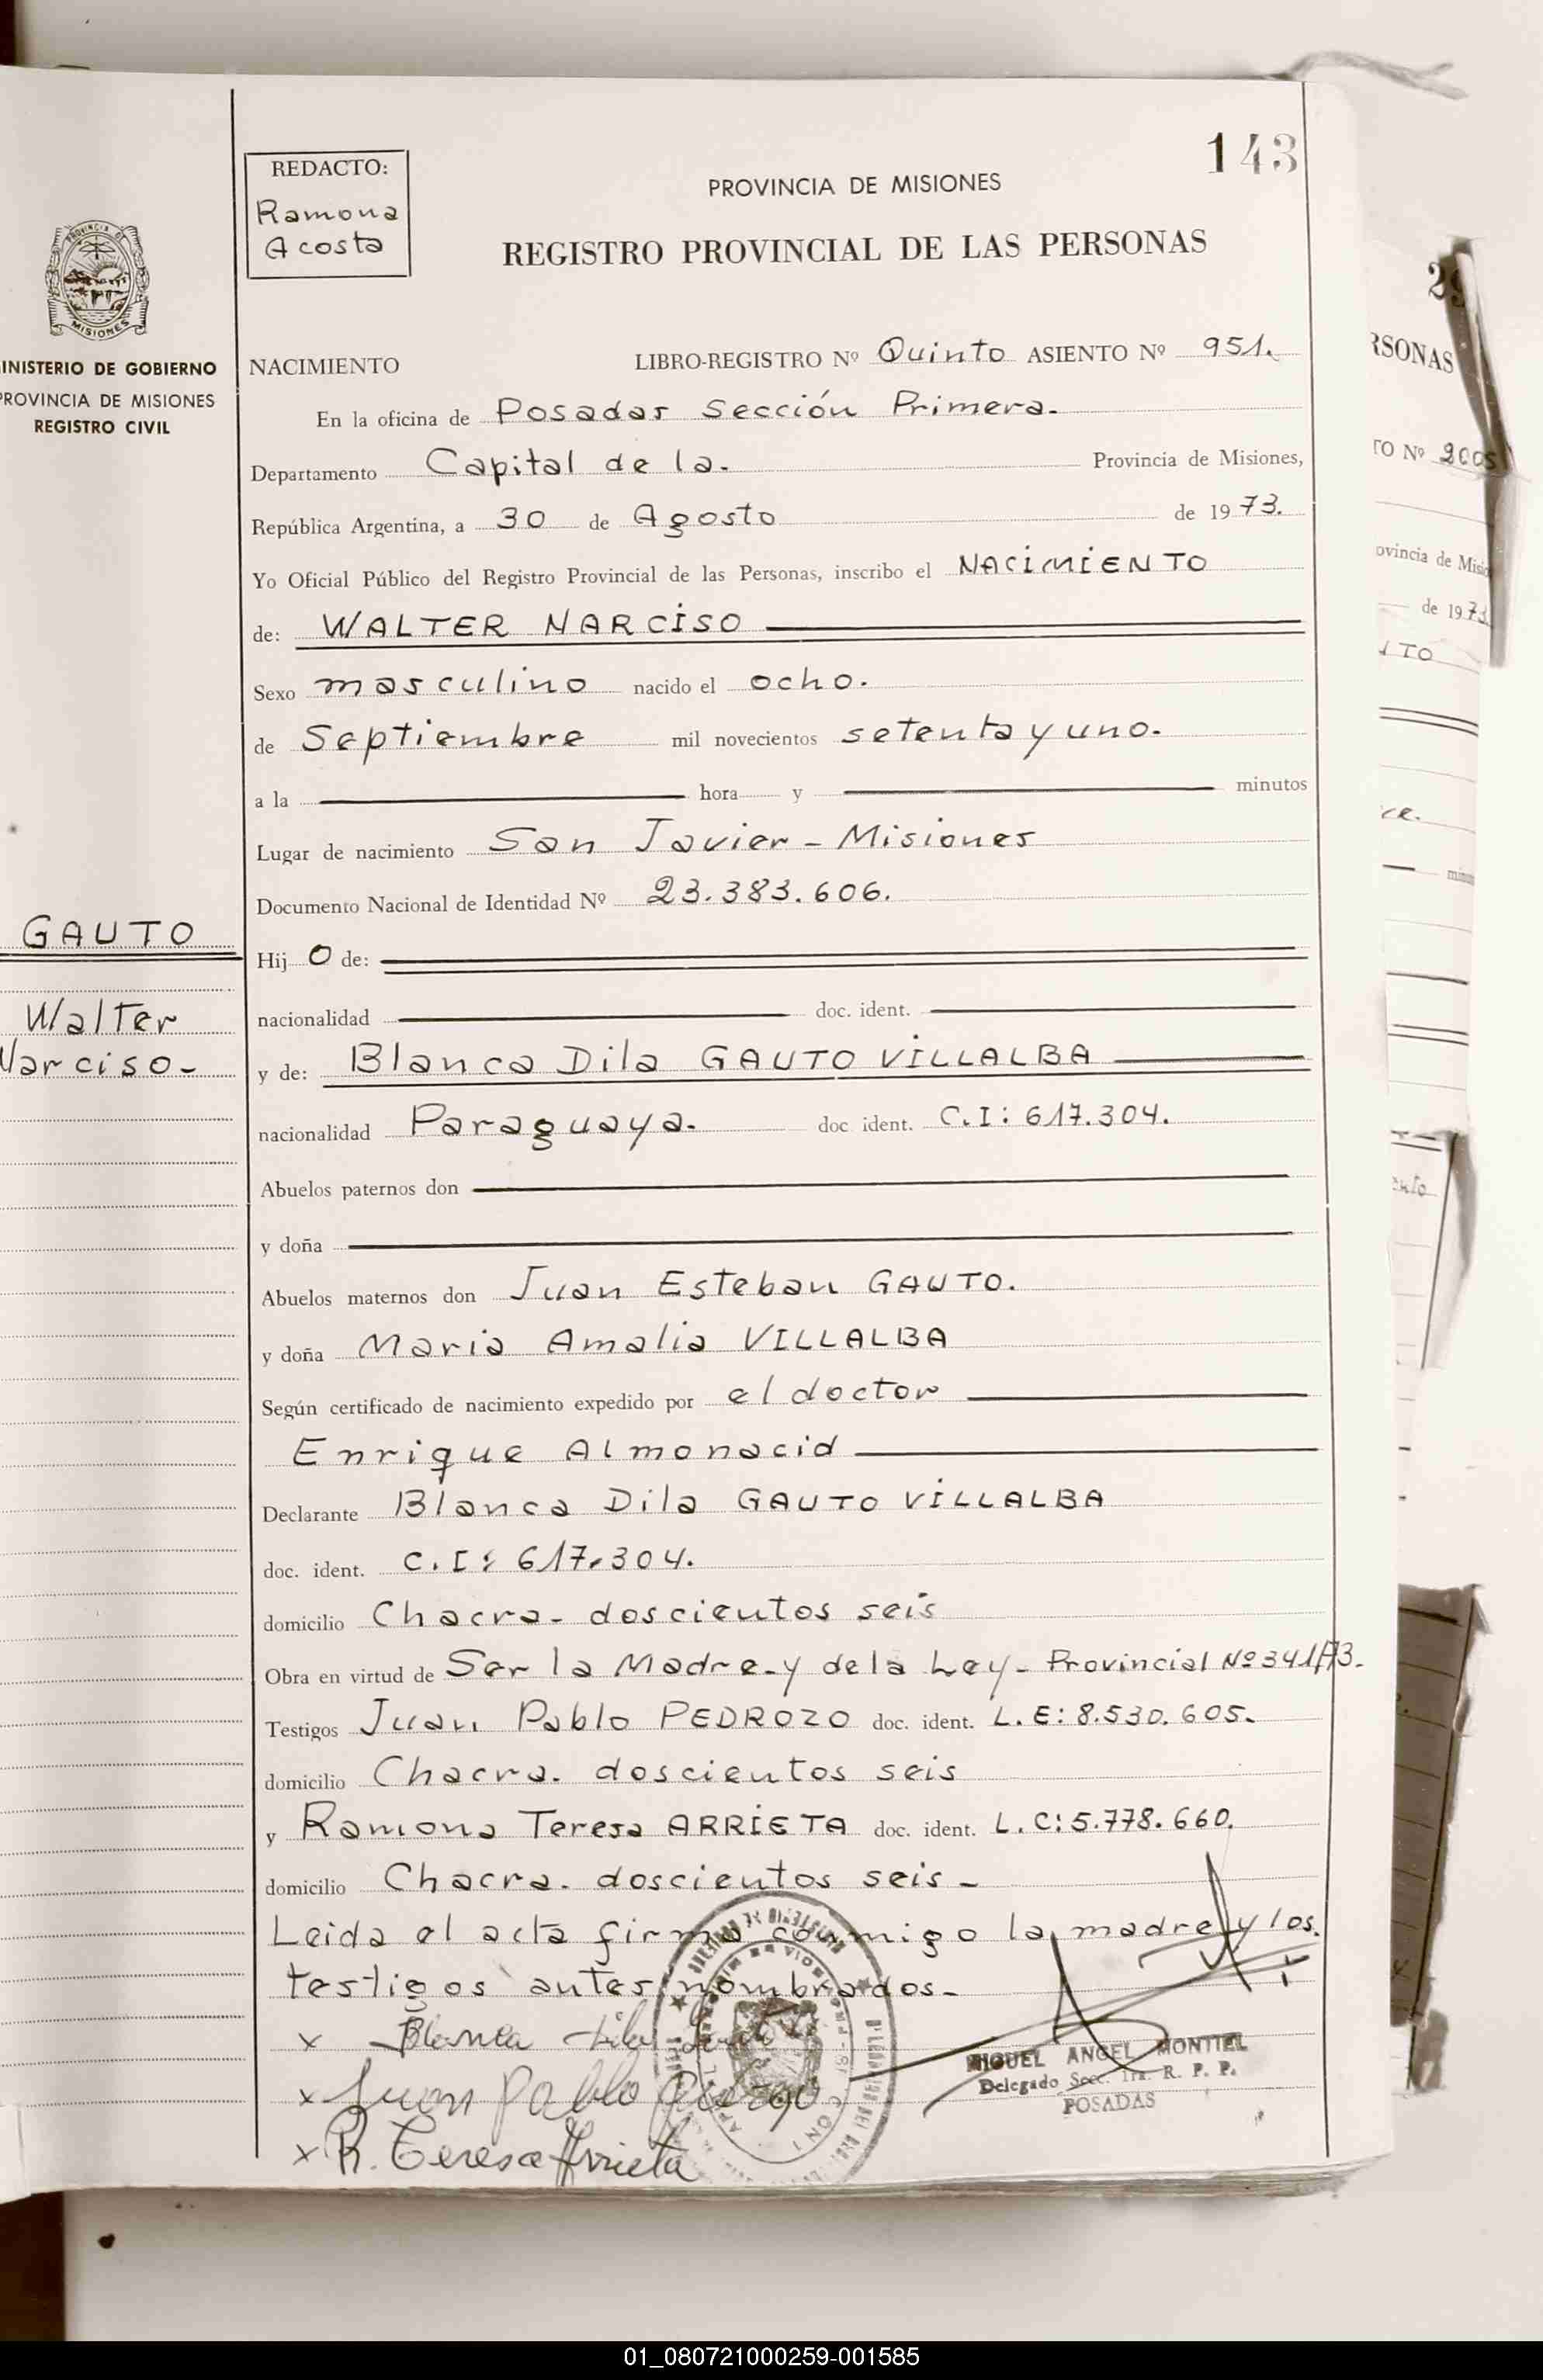 143
REDACTO:
Ramona
Acosta
PROVINCIA DE MISIONES
REGISTRO PROVINCIAL DE LAS PERSONAS
PROVINCIA DE
MISIONES
INISTERIO DE GOBIERNO
PROVINCIA DE MISIONES
REGISTRO CIVIL
NACIMIENTO LIBRO-REGISTRO Nº Quinto ASIENTO Nº 951.
En la oficina de Posadas Sección Primera.
Departamento Capital de la. Provincia de Misiones,
República Argentina, a 30 de Agosto de 1973.
Yo Oficial Público del Registro Provincial de las Personas, inscribo el NACIMIENTO
de: WALTER NARCISO
Sexo masculino nacido el ocho.
de Septiembre mil novecientos setenta y uno.
a la hora y minutos
Lugar de nacimiento San Javier - Misiones
Documento Nacional de Identidad Nº 23.383.606.
GAUTO
Walter
Narciso-
Hij O de:
nacionalidad doc. ident.
y de: Blanca Dila GAUTO VILLALBA
nacionalidad Paraguaya. doc ident. C.I: 617.304.
Abuelos paternos don
y doña
Abuelos maternos don Juan Esteban GAUTO.
y doña Maria Amalia VILLALBA
Según certificado de nacimiento expedido por el doctor
Enrique Almonacid
Declarante Blanca Dila GAUTO VILLALBA
doc. ident. C.I: 617.304.
domicilio Chacra- doscientos seis
Obra en virtud de Ser la Madre-y de la Ley- Provincial Nº 341/73.
Testigos Juan Pablo PEDROZO doc. ident. L.E: 8.530.605.
domicilio Chacra. doscientos seis
y Ramona Teresa ARRIETA doc. ident. L.C: 5.778.660.
domicilio Chacra. doscientos seis-
Leida el acta firma conmigo la madre y los.
testigos antes nombrados-
x Blanca Dila
x Juan Pablo
x R. Teresa Arrieta
MIGUEL ANGEL MONTIEL
Delegado Secc. 1ra. R. P. P.
POSADAS
RSONAS
TO Nº 2005
ovincia de Misio
de 1973
01_080721000259-001585